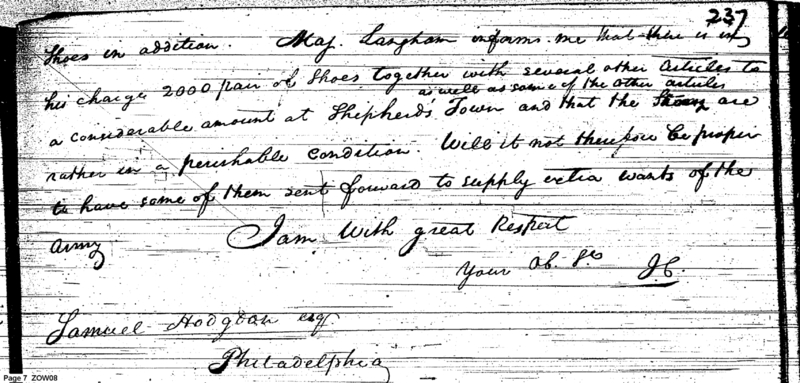 237
Shoes in addition. Maj. Langham informs me that there is in
his charge 2000 pair of Shoes together with several other Articles to
as well as some of the other articles
a considerable amount at Shepherds Town and that the Shoes are
rather in a perishable Condition. Will it not therefore be proper
to have some of them sent forward to supply extra wants of the
Army
I am With great Respect
Your Ob. St.
J.C.
Samuel Hodgdon esqr
Philadelphia
Page 7 ZOW08